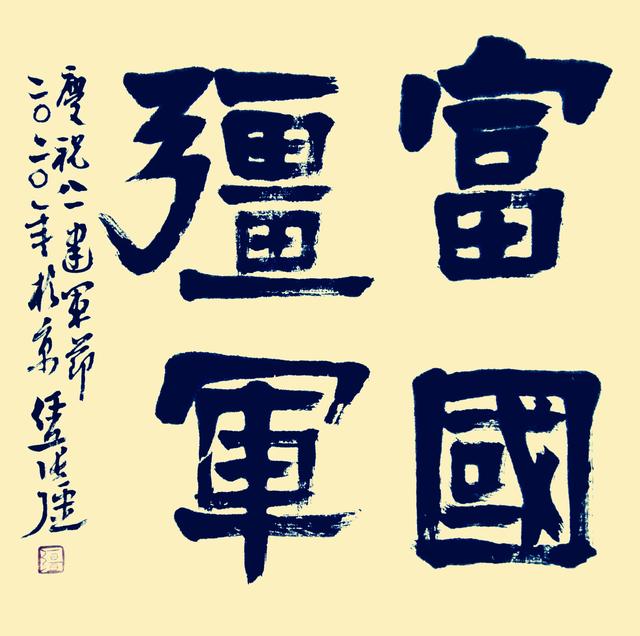 富國
彊軍
慶祝八一建軍節
二〇二〇年於京